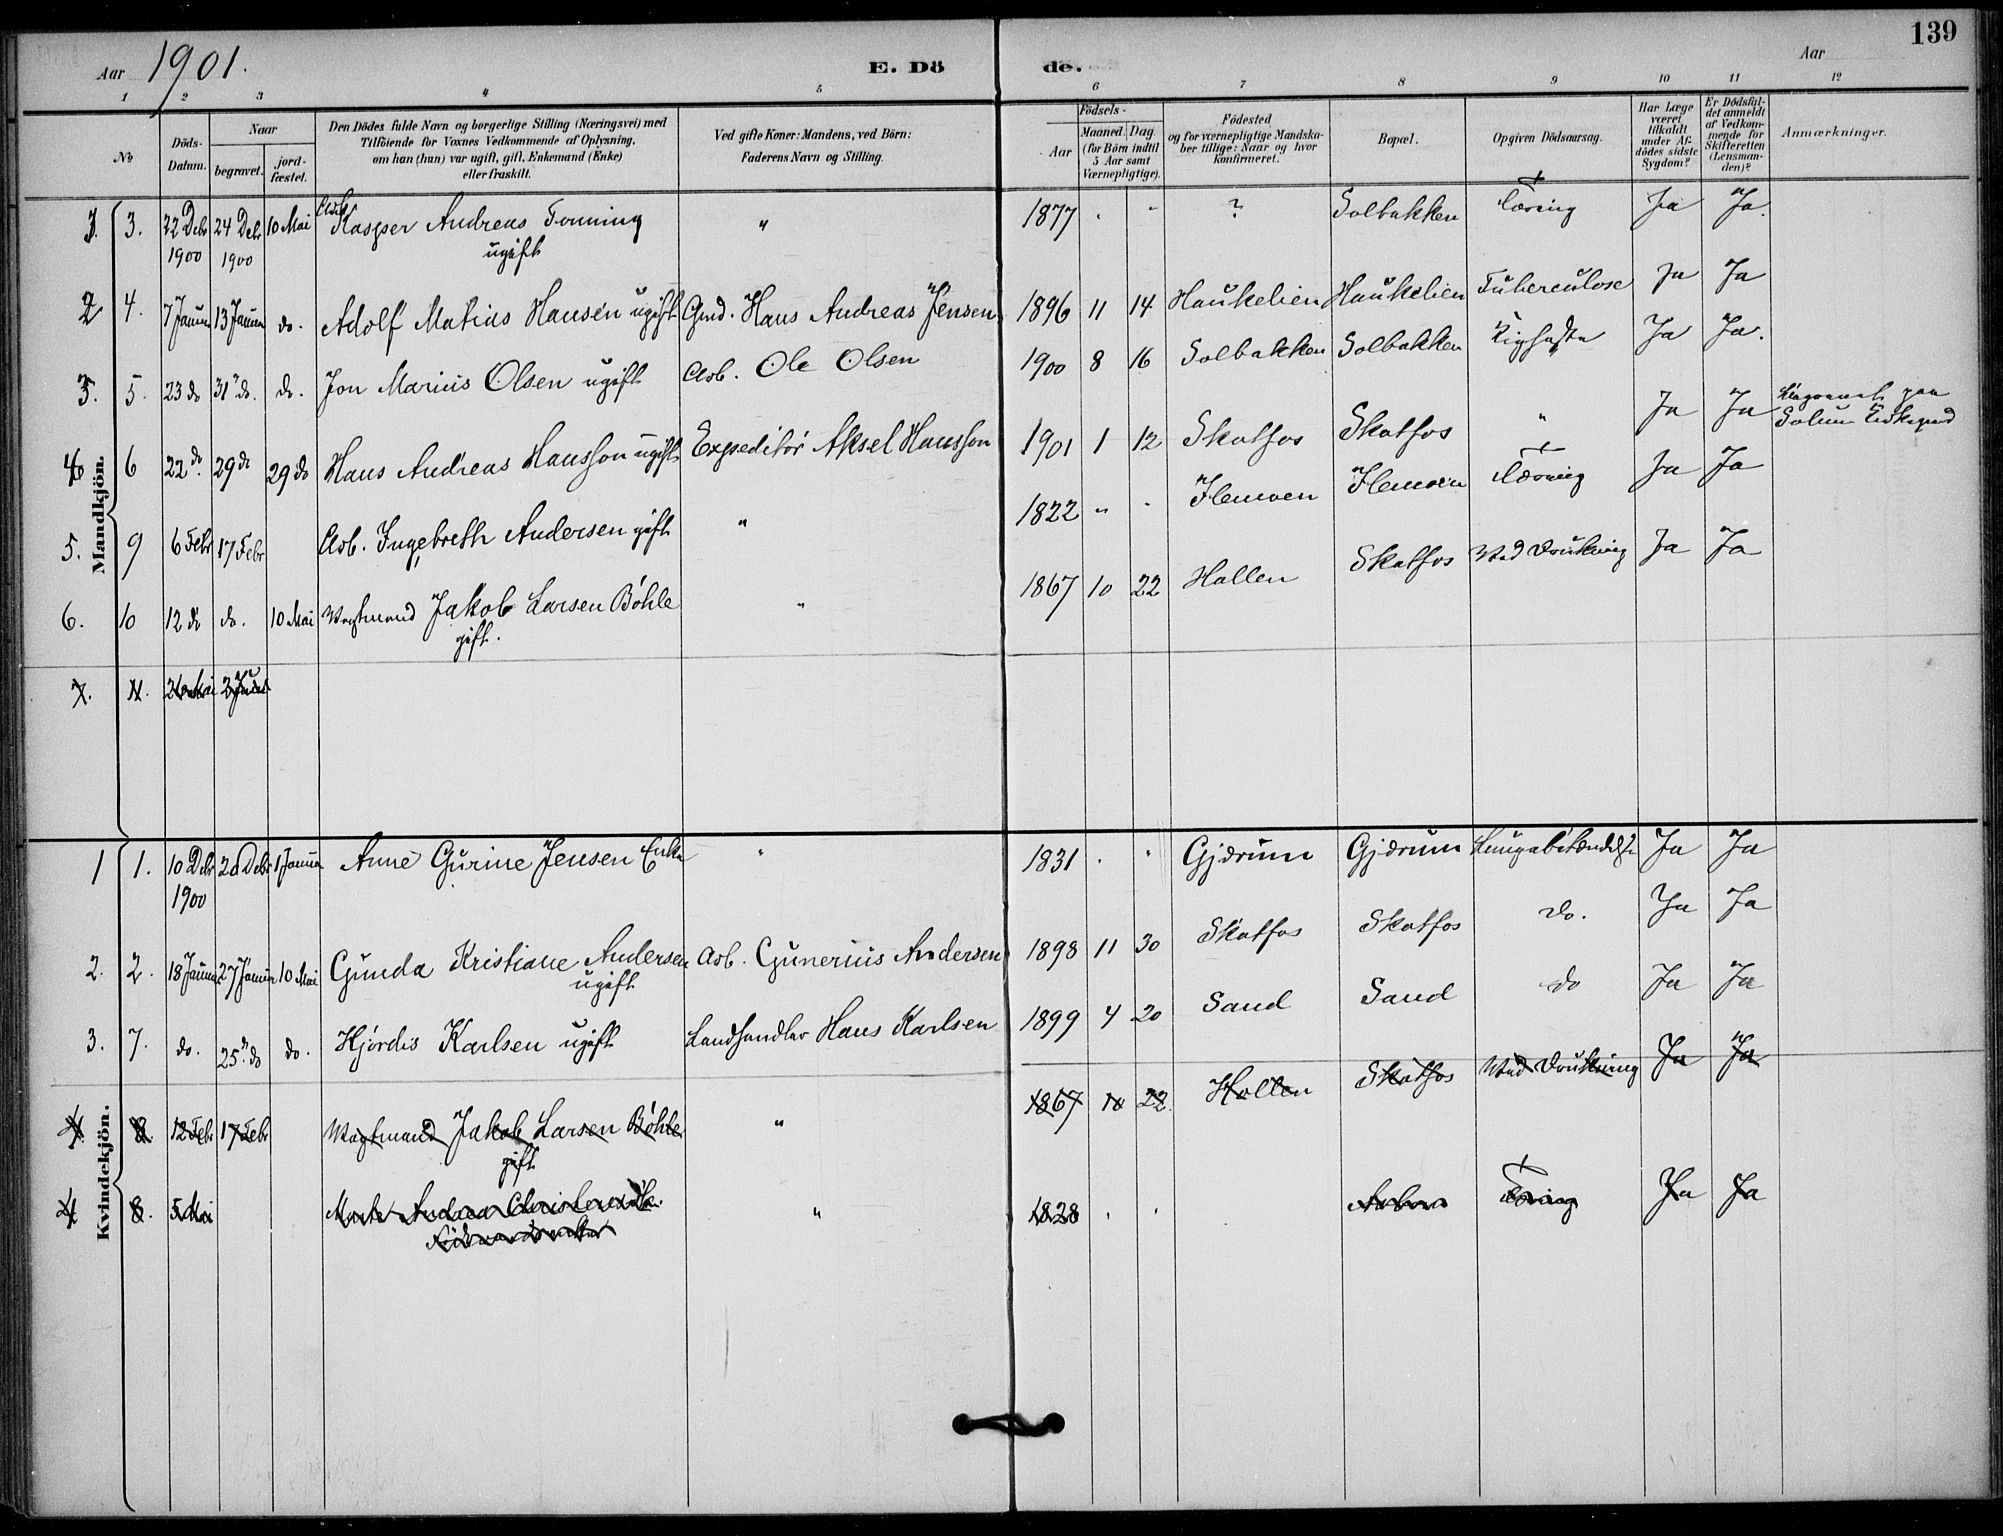 139
Aar 1901. E. Dö de. Aar
1 2 3 4 5 6 7 8 9 10 11 12
No
Döds-Datum.
Naar
begravet.
jord-fæstet.
Den Dödes fulde Navn og borgerlige Stilling (Næringsvei) med
Tilföiende for Voxnes Vedkommende af Oplysning,
om han (hun) var ugift, gift, Enkemand (Enke)
eller fraskilt.
Ved gifte Koner: Mandens, ved Börn:
Faderens Navn og Stilling.
Födsels-
Aar
Maaned. Dag.
(for Börn indtil
5 Aar samt
Værnepligtige).
Födested
og for værnepligtige Mandska-
ber tillige: Naar og hvor
konfirmeret.
Bopæl.
Opgiven Dödsaarsag.
Har Læge
været
tilkaldt
under Af-
dödes sidste
Sygdom?
Er Dödsfal-
det anmeldt
af Vedkom-
mende for
Skifteretten
(Lensman-
den)?
Anmærkninger.
Mandkjön.
1. 3. 22 Debr 24 Debr 10 Mai Arb. Kasper Andreas Tonning " 1877 ? Solbakken Tæring Ja Ja.
1900 1900 ugift
2 4. 7 Januar 13 Januar do. Adolf Matias Hansen ugift Gmd. Hans Andreas Jensen 1896 11 14 Haukelien Haukelien Tuberculose Ja Ja
3. 5. 23 do 31 do. do. Jon Marius Olsen ugift Arb. Ole Olsen 1900 8 16 Solbakken Solbakken Kighoste Ja Ja.
4 6 22 do. 29 do 29 do Hans Andreas Hansson ugift Expeditör Aksel Hansson 1901 1 12 Skotfos Skotfos " Ja Ja paa
Solum
5. 9 6 Febr 17 Febr Arb. Ingebreth Andersen gift " 1822 " Flemoen Flemoen Tæring Ja Ja
6. 10 12 do do. 10 Mai Vagtmand Jakob Larsen Böhle " 1867 10 22 Hollen Skotfos Ved Drukning Ja Ja
gift.
7. 11. 26 Mai 2 Juni
Kvindekjön.
1 1. 10 Debr 20 Debr 1 Januar Anne Gurine Jensen Enke " 1831 " Gjærum Gjærum Lungebetændelse Ja Ja
1900
2. 2. 18 Januar 27 Januar 10 Mai Gunda Kristiane Andersen Arb. Gunerius Andersen 1898 11 30 Skotfos Skotfos do. Ja Ja
ugift
3. 7. do. 25 do do. Hjördis Karlsen ugift Landhandler Hans Karlsen 1899 4 20 Sand Sand do Ja Ja
4 8 12 Febr 17 Febr Vagtmand Jakob Larsen Böhle " 1867 10 22 Hollen Skotfos Ved Drukning Ja Ja
gift
4 8. 5 Mai Andrea " 1828 Tæring Ja Ja